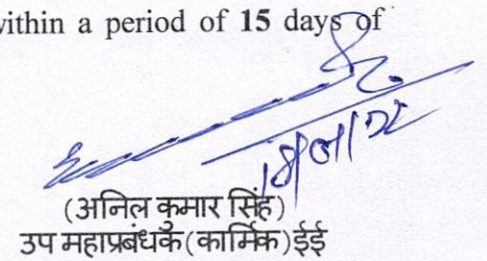 within a period of 15 days of
(अनिल कुमार सिंह)
उप महाप्रबंधक(कार्मिक)ईई